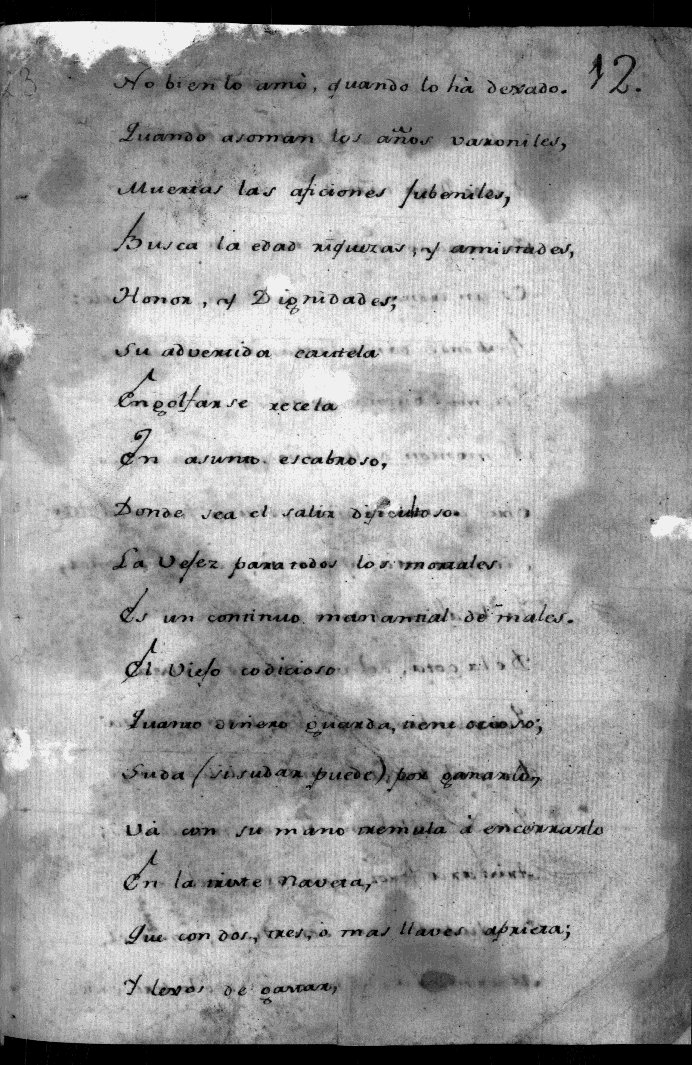 12.
No bien lo amò, quando lo hà dexado.
Quando asoman los años varoniles,
Muertas las aficiones jubeniles,
Busca la edad riquezas, y amistades,
Honor, y Dignidades;
Su advertida cautela
Engolfarse recela
En asunto escabroso,
Donde sea el salir dificultoso.
La Vejez para todos los mortales
Es un continuo manantial de males.
El Viejo codicioso
Quanto dinero guarda, tiene ocioso;
Suda (si sudar puede) por ganarlo,
Và con su mano tremula à encerrarlo
En la triste naveta,
Que con dos, tres, ò mas llaves aprieta;
Y lexos de gastar,